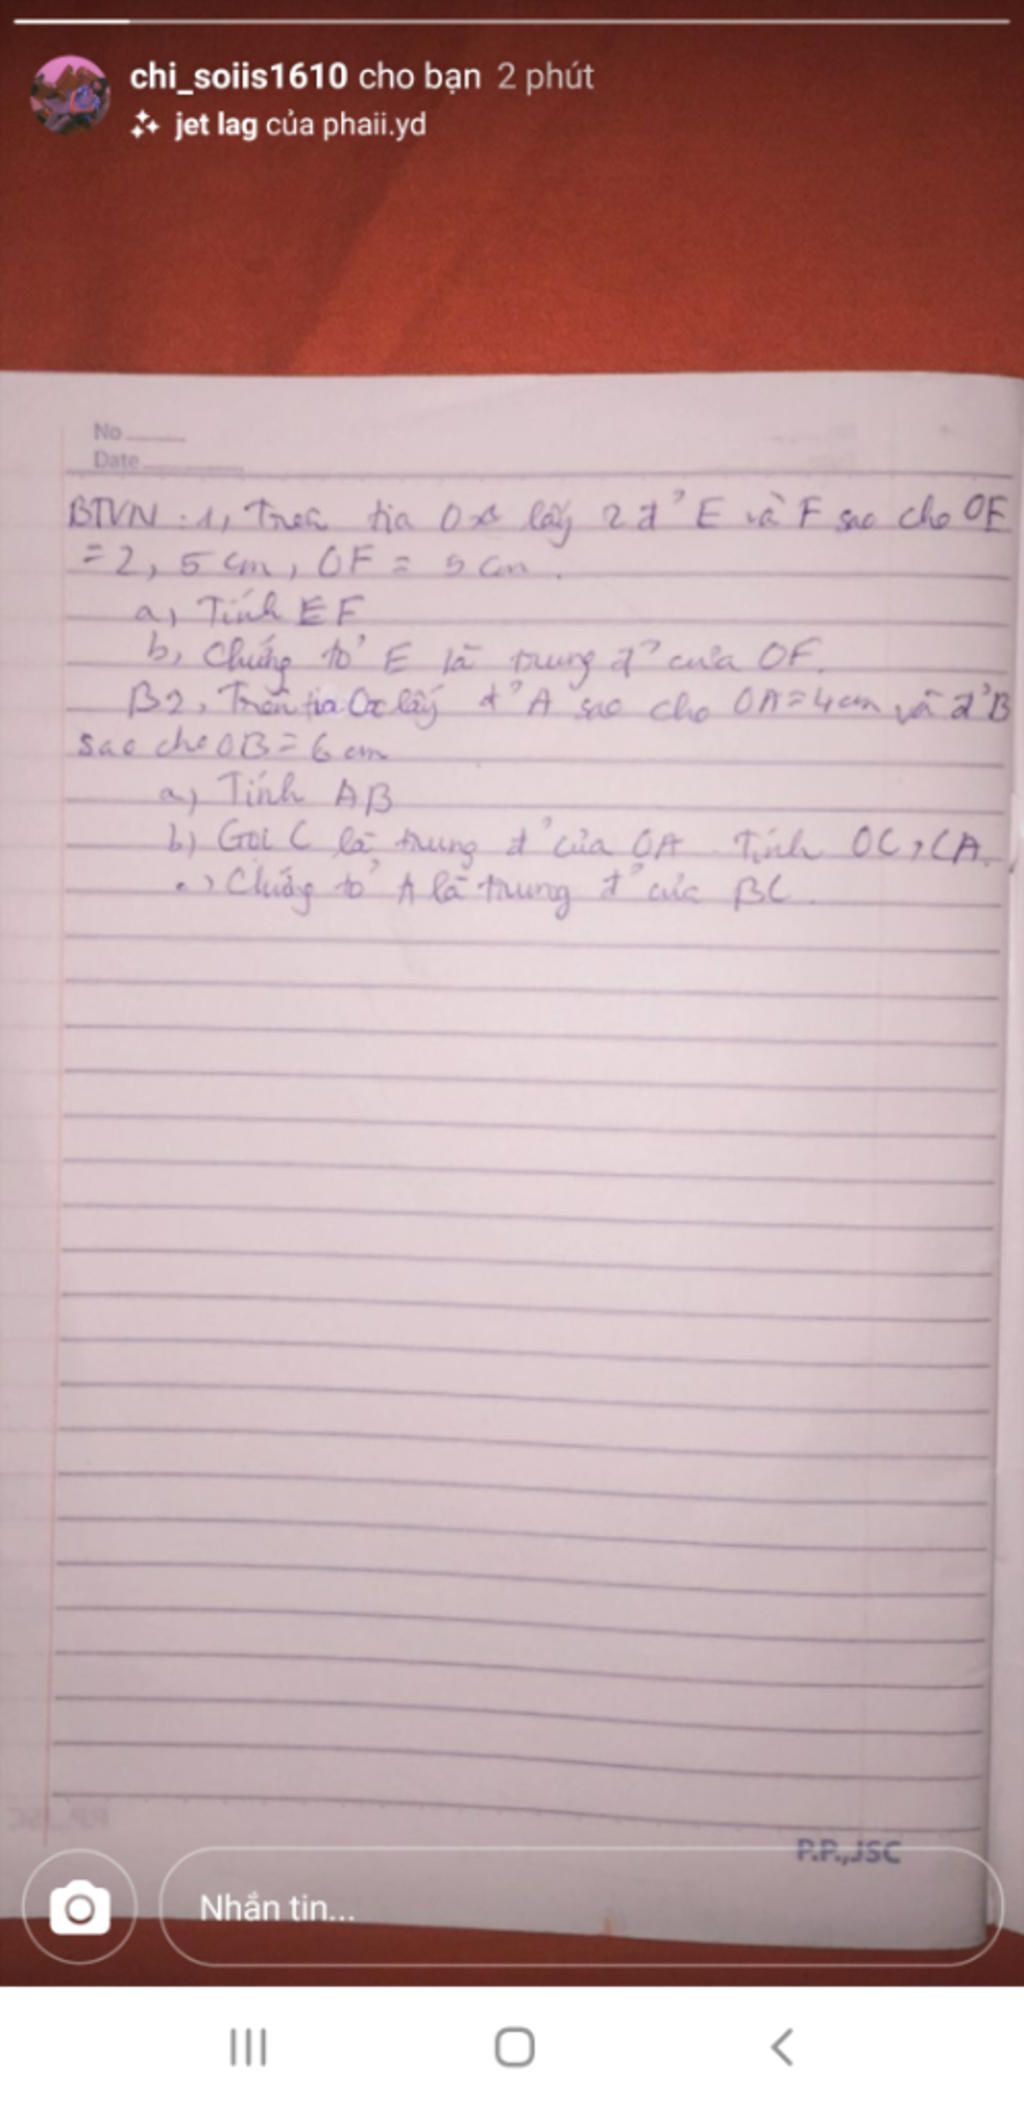 chi_soiis1610 cho bạn 2 phút
jet lag của phaii.yd
No
Date
BTVN : 1, Trên tia Ox lấy 2 đ' E và F sao cho OE
= 2, 5 cm, OF = 5 cm.
a, Tính EF
b, Chứng tỏ E là trung đ' của OF.
B2, Trên tia Ox lấy đ' A sao cho OA = 4cm và đ' B
sao cho OB = 6 cm
a, Tính AB
b) Gọi C là trung đ' của OA. Tính OC, CA.
c) Chứng tỏ A là trung đ' của BC.
P.P.,JSC
Nhắn tin...